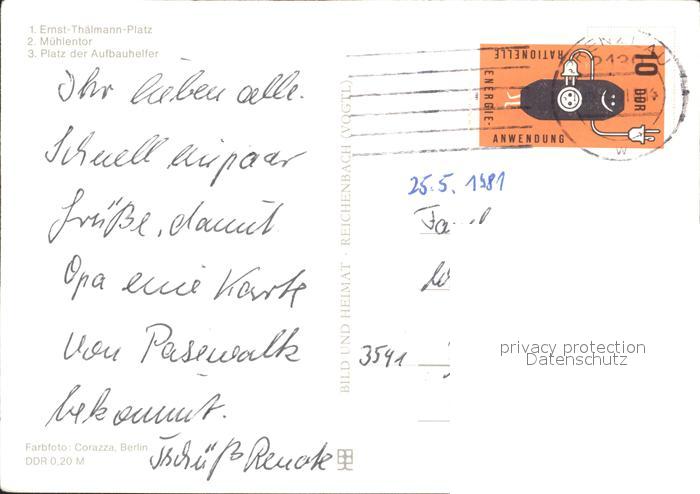 1. Ernst-Thälmann-Platz
2. Mühlentor
3. Platz der Aufbauhelfer
Ihr lieben alle.
Schnell ein paar
Grüße, damit
Opa eine Karte
von Pasewalk
bekommt.
Tschüß Renate
Farbfoto: Corazza, Berlin
DDR 0,20 M
BILD UND HEIMAT · REICHENBACH (VOGTL)
RATIONELLE
ENERGIE-
ANWENDUNG
10
DDR
25.5.1981
Fa
3541
privacy protection
Datenschutz